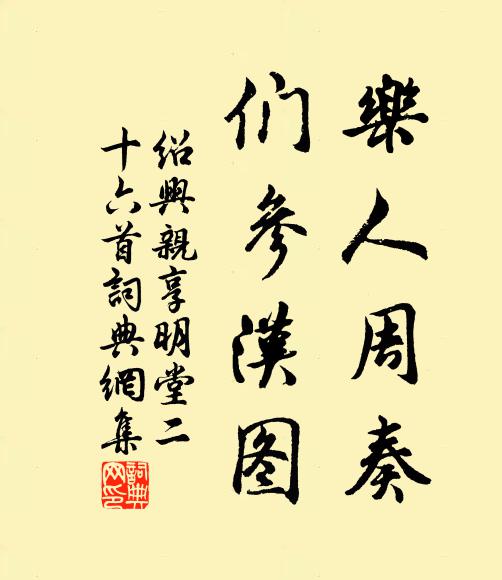 樂人周奏
们參漢图
绍興親享明堂二
十六首詞典網集
詞典
网印